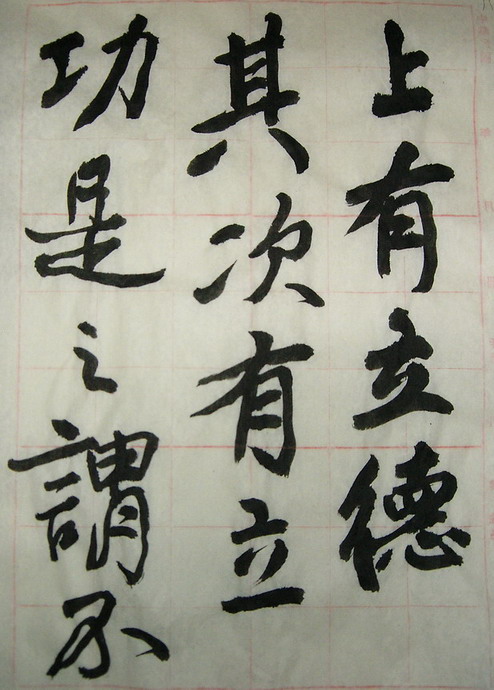 上有立德
其次有立
功是之謂不